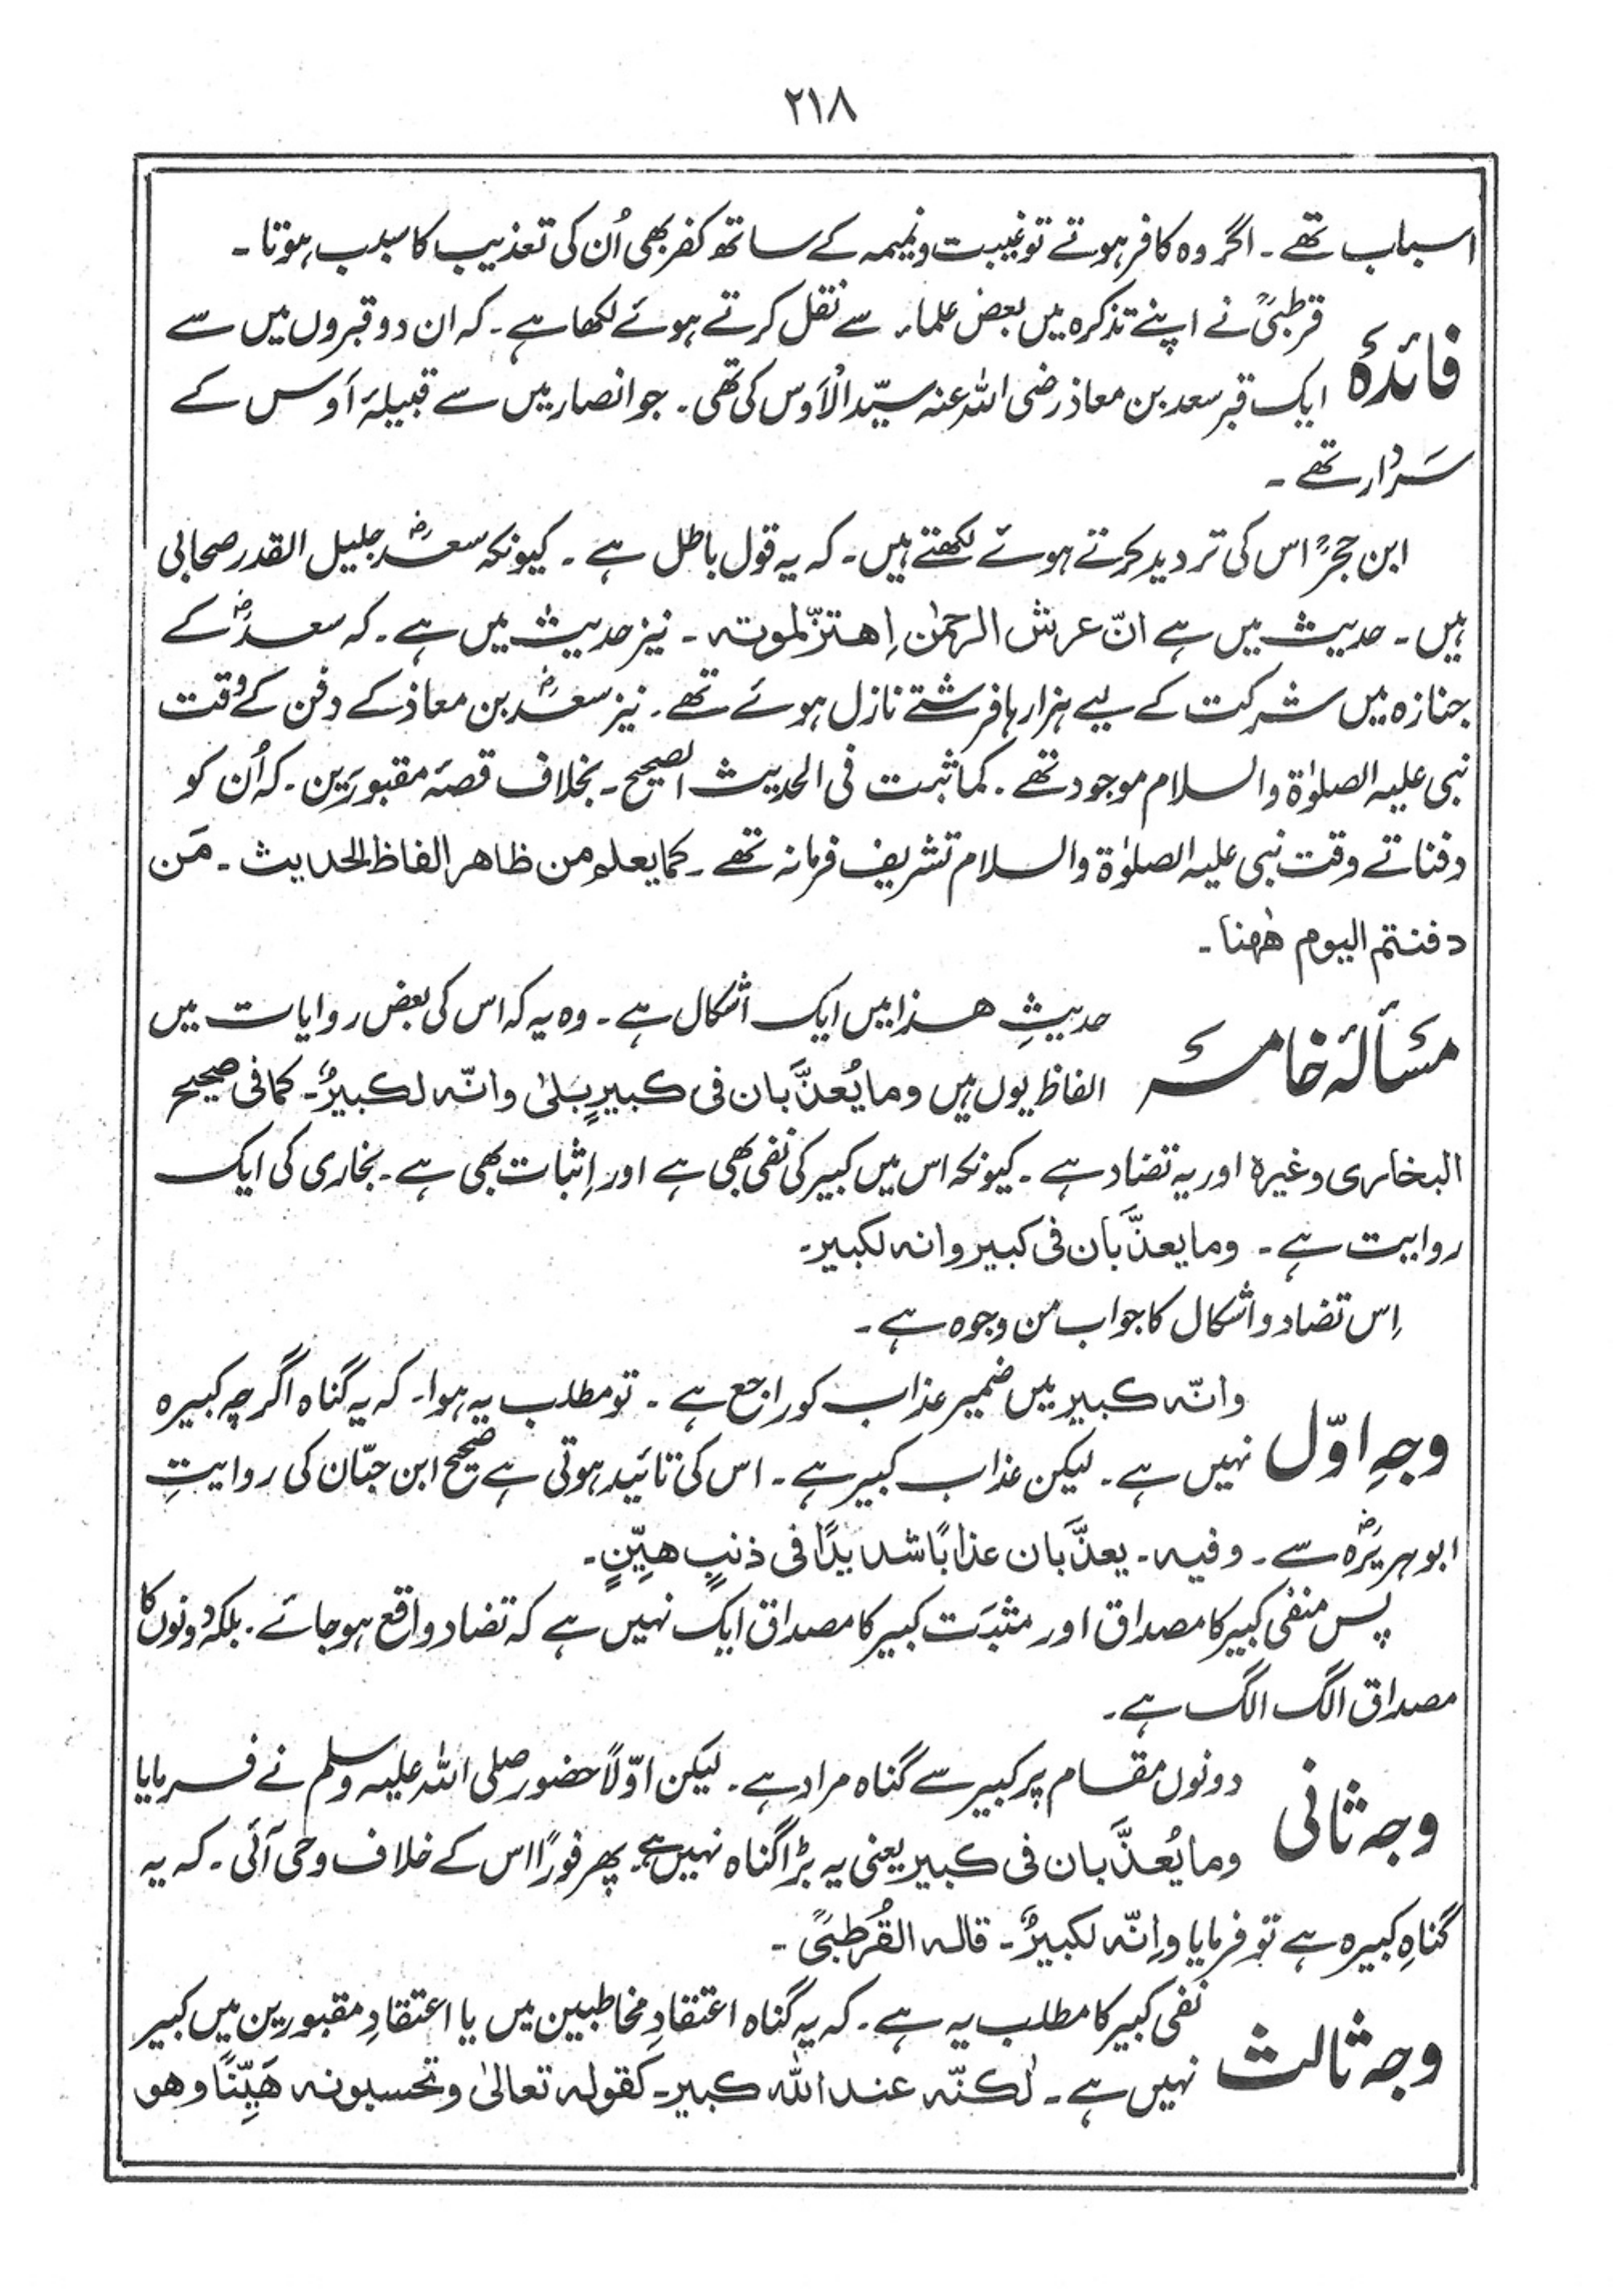 ۲۱۸
اسباب تھے ۔ اگر وہ کافر ہوتے تو غیبت و نمیمہ کے ساتھ کفر بھی اُن کی تعذیب کا سبب ہوتا ۔
فائدہ قرطبیؒ نے اپنے تذکرہ میں بعض علماء سے نقل کرتے ہوئے لکھا ہے ۔ کہ ان دو قبروں میں سے
ایک قبر سعد بن معاذ رضی اللہ عنہ سیّد الْاَوس کی تھی ۔ جو انصار میں سے قبیلۂ اَوس کے
سَردار تھے ۔
ابن حجرؒ اس کی تردید کرتے ہوئے لکھتے ہیں ۔ کہ یہ قول باطل ہے ۔ کیونکہ سعدؓ جلیل القدر صحابی
ہیں ۔ حدیث میں ہے انّ عرش الرحمٰن اِھتزّ لموتہ ۔ نیز حدیث میں ہے ۔ کہ سعدؓ کے
جنازہ میں شرکت کے لیے ہزار ہا فرشتے نازل ہوئے تھے ۔ نیز سعدؓ بن معاذ کے دفن کے وقت
نبی علیہ الصلوٰۃ والسلام موجود تھے ۔ کما ثبت فی الحدیث الصحیح ۔ بخلاف قصۂ مقبورَین ۔ کہ اُن کو
دفناتے وقت نبی علیہ الصلوٰۃ والسلام تشریف فرما نہ تھے ۔ کما یعلم من ظاھر الفاظ الحدیث ۔ مَن
دفنتم الیوم ھٰھنا ۔
مسألۂ خامسہ حدیثِ ھذا میں ایک اشکال ہے ۔ وہ یہ کہ اس کی بعض روایات میں
الفاظ یوں ہیں وما یُعذَّبان فی کبیرٍ بَلیٰ وانّہ لکبیرٌ ۔ کما فی صحیح
البخاری وغیرہ اور یہ تضاد ہے ۔ کیونکہ اس میں کبیر کی نفی بھی ہے اور اِثبات بھی ہے ۔ بخاری کی ایک
روایت ہے ۔ وما یعذَّبان فی کبیر وانہ لکبیر ۔
اِس تضاد و اشکال کا جواب من وجوہ ہے ۔
وجہِ اوّل وانّہ کبیر میں ضمیر عذاب کو راجع ہے ۔ تو مطلب یہ ہوا ۔ کہ یہ گناہ اگرچہ کبیرہ
نہیں ہے ۔ لیکن عذاب کبیر ہے ۔ اس کی تائید ہوتی ہے صحیح ابن حبّان کی روایتِ
ابوہریرَہؓ سے ۔ وفیہ ۔ یعذَّبان عذابًا شدیدًا فی ذنبٍ ھیِّنٍ ۔
پس منفی کبیر کا مصداق اور مثبَت کبیر کا مصداق ایک نہیں ہے کہ تضاد واقع ہو جائے ۔ بلکہ دونوں کا
مصداق الگ الگ ہے ۔
وجہ ثانی دونوں مقام پر کبیر سے گناہ مراد ہے ۔ لیکن اوّلاً حضور صلی اللہ علیہ وسلم نے فرمایا
وما یُعذَّبان فی کبیر یعنی یہ بڑا گناہ نہیں ہے ۔ پھر فوراً اس کے خلاف وحی آئی ۔ کہ یہ
گناہِ کبیرہ ہے تو فرمایا واِنّہ لکبیرٌ ۔ قالہ القُرطبیؒ ۔
وجہ ثالث نفی کبیر کا مطلب یہ ہے ۔ کہ یہ گناہ اعتقادِ مخاطبین میں یا اعتقادِ مقبورین میں کبیر
نہیں ہے ۔ لٰکنّہ عند اللہ کبیر ۔ کقولہ تعالیٰ وتحسبونہ ھَیِّنًا وھو